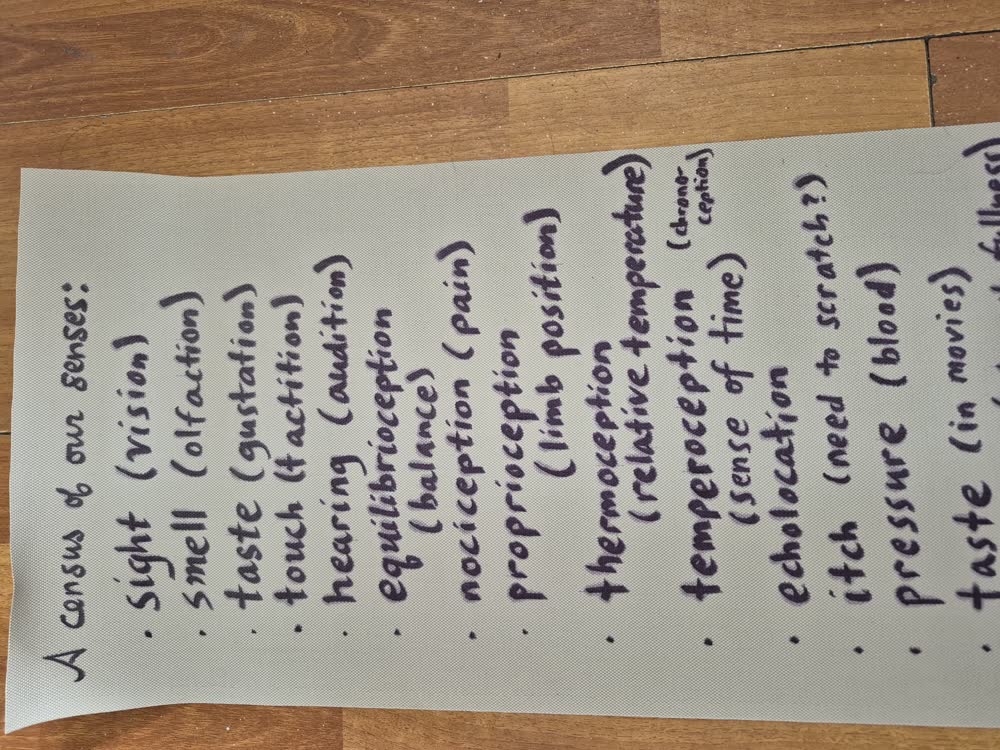 A census of our senses:
• sight (vision)
• smell (olfaction)
• taste (gustation)
• touch (tactition)
• hearing (audition)
• equilibrioception
(balance)
• nociception (pain)
• proprioception
(limb position)
• thermoception
(relative temperature)
• temperoception (chrono-
ception)
(sense of time)
• echolocation
• itch (need to scratch?)
• pressure (blood)
• taste (in movies)
fullness)